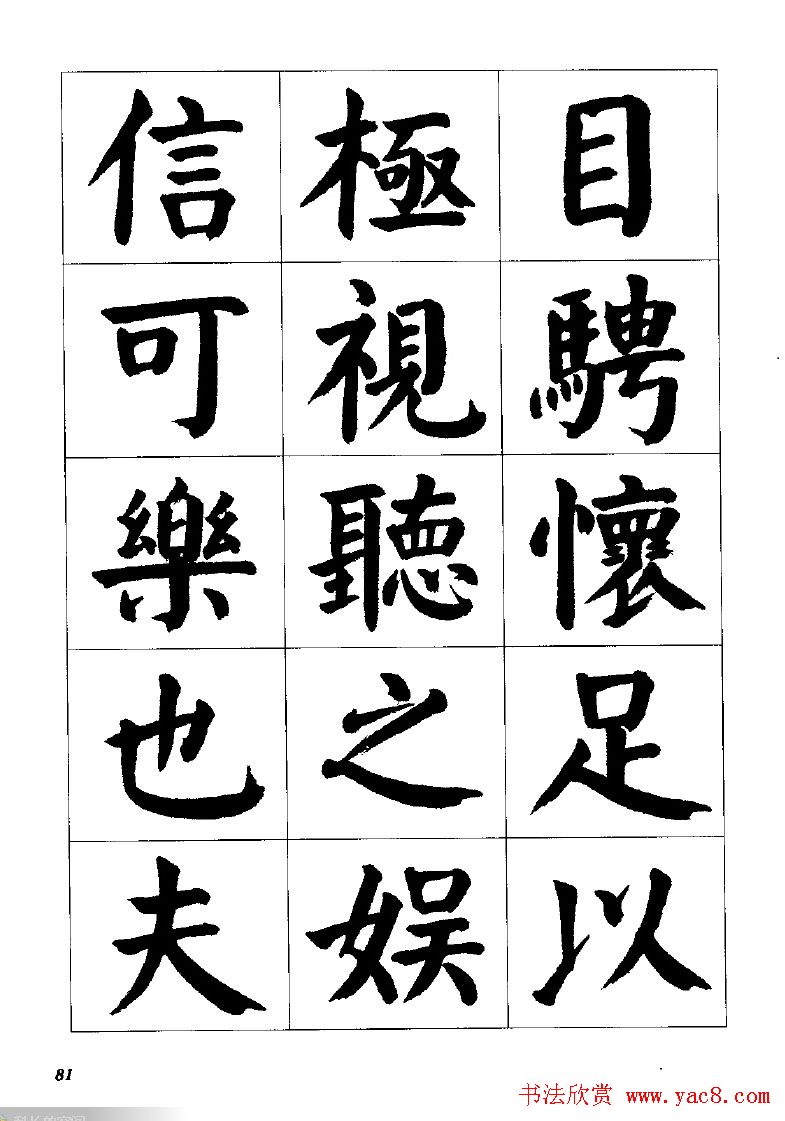 目騁懷足以
極視聽之娛
信可樂也夫
81
书法欣赏 www.yac8.com